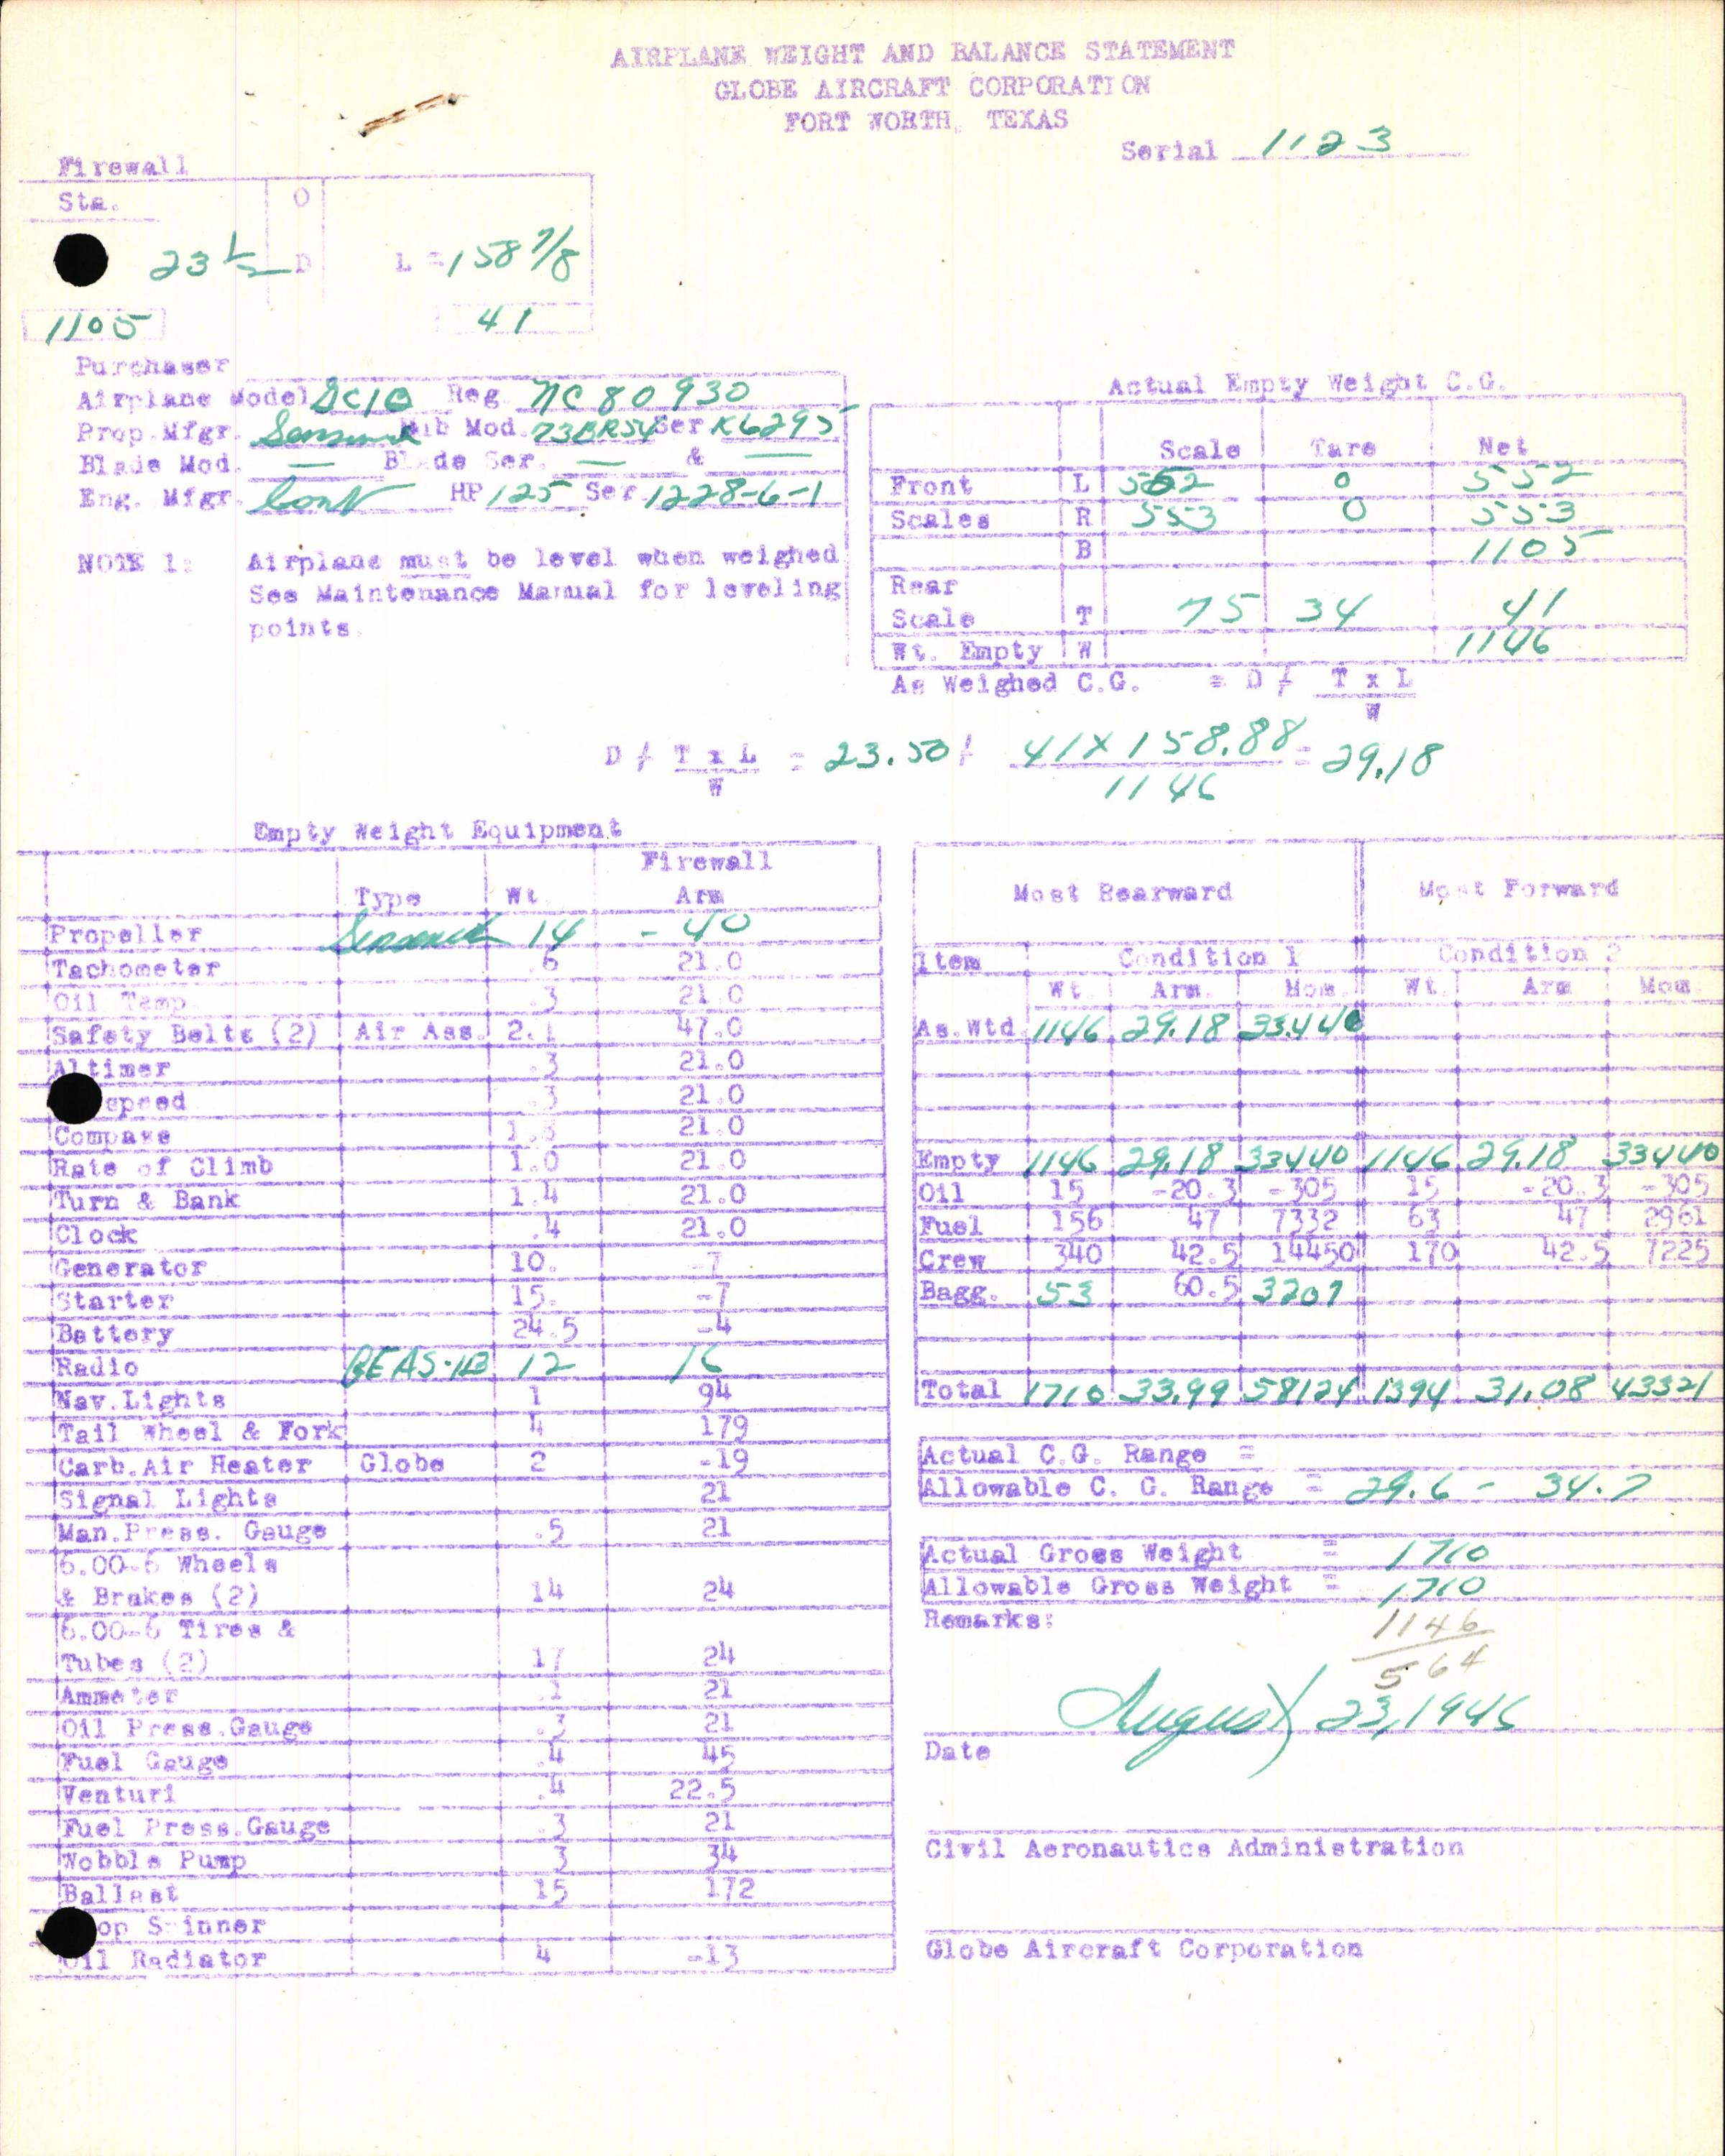 AIRPLANE WEIGHT AND BALANCE STATEMENT
GLOBE AIRCRAFT CORPORATION
FORT WORTH, TEXAS
Serial 1123
Firewall
Sta. O
23 1/2 D L = 158 7/8
1105 41
Purchaser
Airplane Model GC1B Reg. NC 80930
Prop.Mfgr. Sensenich Hub Mod. 73BR54 Ser K6295
Blade Mod. — Blade Ser. — & —
Eng. Mfgr. Cont HP 125 Ser. 1228-6-1
NOTE 1: Airplane must be level when weighed
See Maintenance Manual for leveling
points.
Actual Empty Weight C.G.
Scale Tare Net
Front L 552 0 552
Scales R 553 0 553
B 1105
Rear
Scale T 75 34 41
Wt. Empty W 1146
As Weighed C.G. = D / T x L
W
D / T x L = 23.50 / 41 X 158.88 = 29.18
W 1146
Empty Weight Equipment
Firewall
Type Wt. Arm
Propeller Sensenich 14 -40
Tachometer .6 21.0
Oil Temp .3 21.0
Safety Belts (2) Air Ass. 2.1 47.0
Altimer .3 21.0
speed .3 21.0
Compass 21.0
Rate of Climb 1.0 21.0
Turn & Bank 1.4 21.0
Clock .4 21.0
Generator 10. -7
Starter 15. -7
Battery 24.5 -4
Radio 12 16
Nav.Lights 1 94
Tail Wheel & Fork 4 179
Carb.Air Heater Globe 2 -19
Signal Lights 21
Man.Press. Gauge .5 21
6.00-6 Wheels
& Brakes (2) 14 24
6.00-6 Tires &
Tubes (2) 17 24
Ammeter .1 21
Oil Press.Gauge .3 21
Fuel Gauge .4 45
Venturi .4 22.5
Fuel Press.Gauge .3 21
Wobble Pump 3 34
Ballast 15 172
op Spinner
Oil Radiator 4 -13
Most Rearward Most Forward
Item Condition 1 Condition 2
Wt. Arm. Mom. Wt. Arm Mom.
As.Wtd 1146 29.18 33440
Empty 1146 29.18 33440 1146 29.18 33440
Oil 15 -20.3 -305 15 -20.3 -305
Fuel 156 47 7332 63 47 2961
Crew 340 42.5 14450 170 42.5 7225
Bagg. 53 60.5 3207
Total 1710 33.99 58124 1394 31.08 43321
Actual C.G. Range =
Allowable C. G. Range = 29.6 - 34.7
Actual Gross Weight = 1710
Allowable Gross Weight = 1710
Remarks: 1146
564
August 23, 1946
Date
Civil Aeronautics Administration
Globe Aircraft Corporation